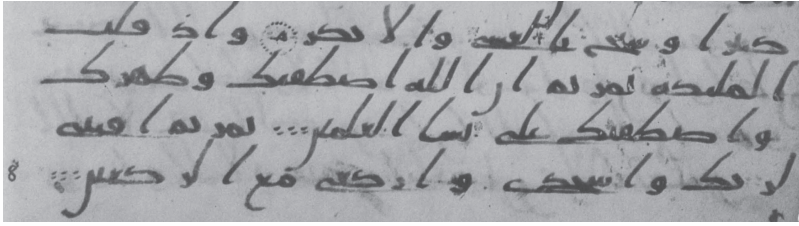 كثيرا وسبح بالعشي والابكر واذ قلت
الملئكة يمريم ان الله اصطفيك وطهرك
واصطفيك على نسا العلمين يمريم اقنتي
لربك واسجدي واركعي مع الركعين